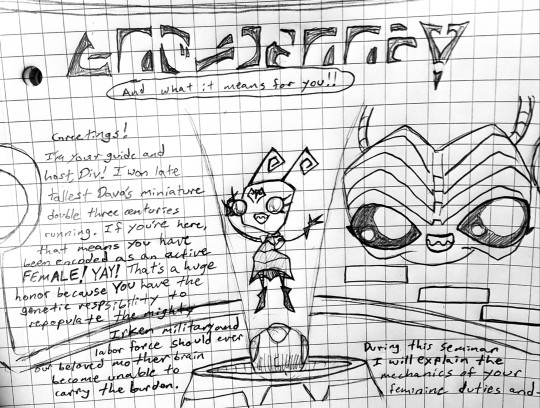 And what it means for you!!
Greetings!
I'm your guide and
host Div! I won late
tallest Dava's miniature
double three centuries
running. If you're here,
that means you have
been encoded as an active
FEMALE! YAY! That's a huge
honor because you have the
genetic respsibility to
repopulate the mighty
Irken military and
labor force should ever
our beloved mother brain
become unable to
carry the burden.
During this seminar
I will explain the
mechanics of your
feminine duties and-